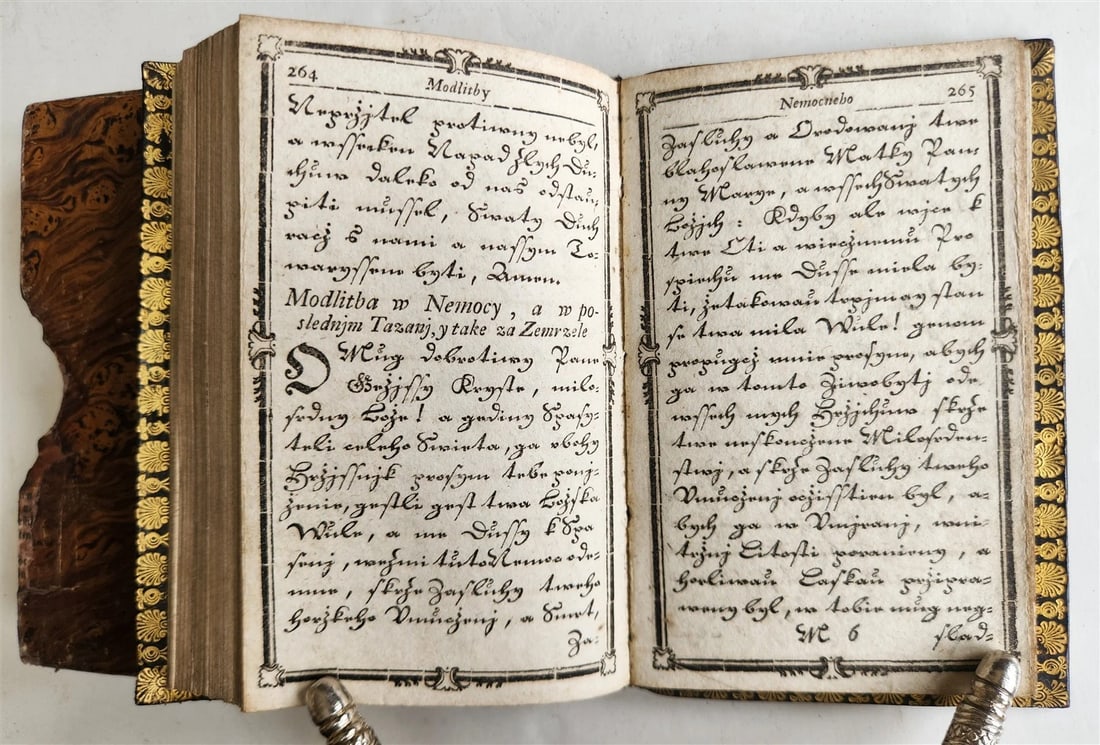 264
Modlitby
Nepržjtel protiwny nebyl,
a wsseckeu Napad Zlych Du-
chuw daleko od nas odstau-
piti mussel, Swaty Duch
racž s nami a nassym To-
waryssem byti, Amen.
Modlitba w Nemocy, a w po-
slednjm Tazanj, y take za Zemrzele
O Mug dobrotiwy Pane
Gežjssy Kryste, milo-
srdny Bože! a gediny Spasy-
teli celeho Swieta, ga vbohy
Hržjssnjk prosym tebe ponj-
ženie, gestli gest twa Božska
Wule, a me Dussy k Spa
senj, wežmi tuto Nemoc ode-
mne, skrže Zasluhy tweho
horžkeho Vmucženj, a Smrt,
Za-
Nemocneho
265
Zasluhy a Orodowanj twe
blahoslawene Matky Pan-
ny Marye, a wssech Swatych
Božjch: Kdyby ale wjce k
twe Cti a wiecžnemu Pro
spiechu me Dusse miela by-
ti, že takowau trpjm ay stan
se twa mila Wule! genom
propugcž mnie prosym, abych
ga w tomto Ziwobytj ode
wssech mych Hržjchuw skrže
twe neskoncžene Milosrden-
stwj, a skrže Zasluhy tweho
Vmucženj ocžisstien byl, a-
bych ga w Vmjranj, wni-
tržnj Litosti poranieny, a
horliwau Laskau pržipra-
weny byl, w tobie mug neg-
M 6
slad-